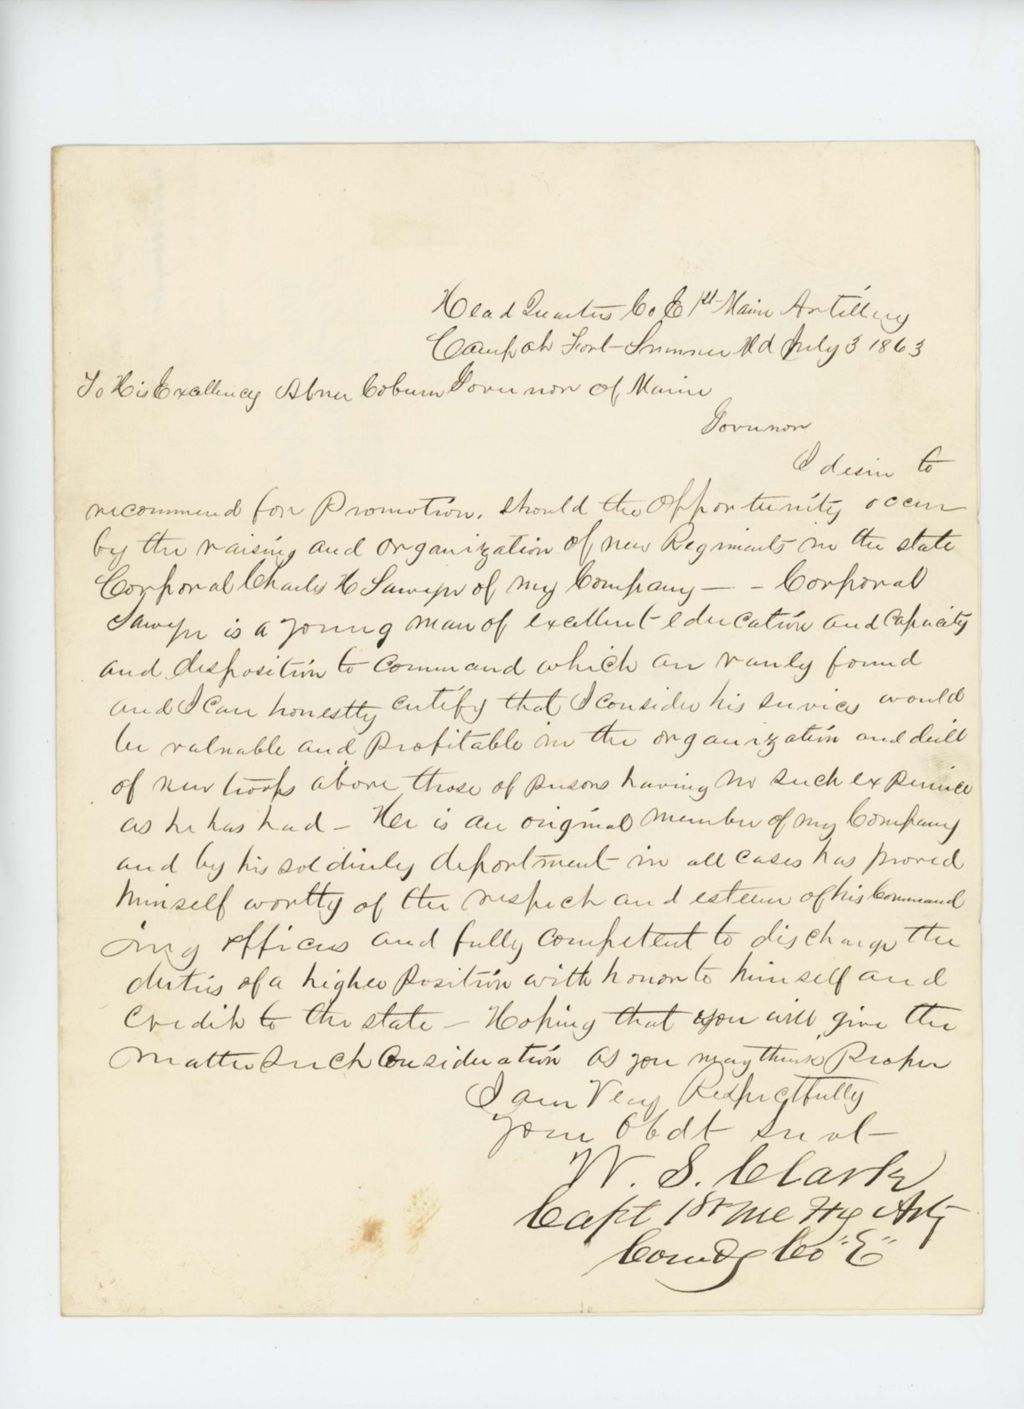 Head Quarters Co E 1st Maine Artillery
Camp at Fort Sumner Md July 3 1863
To His Excellency Abner Coburn Governor of Maine
Governor
I desire to
recommend for Promotion, should the opportunity occur
by the raising and organization of new Regiments in the state
Corporal Charles H Sawyer of my Company — - Corporal
Sawyer is a young man of excellent education and capacity
and disposition to command which are rarely found
and I can honestly certify that I consider his services would
be valuable and profitable in the organization and drill
of new troops above those of persons having no such experience
as he has had - He is an original member of my Company
and by his soldierly deportment in all cases has proved
himself worthy of the respect and esteem of his Command
ing officers and fully competent to discharge the
duties of a higher position with honor to himself and
credit to the state - Hoping that you will give the
matter such consideration as you may think Proper
I am Very Respectfully
Your Obdt Servt
W. S. Clark
Capt 1st Me Hy Arty
Comdg Co "E"